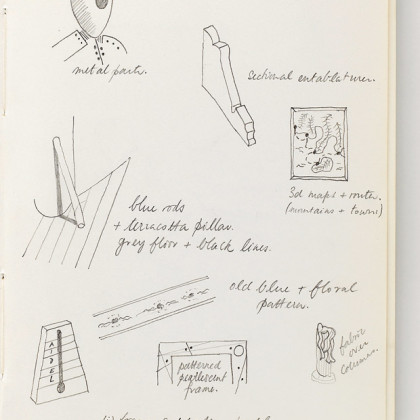 metal parts.
sectional entablatures.
3d maps + routes.
(mountains + towns)
blue rods
+ terracotta pillar.
grey floor + black lines.
old blue + floral
pattern.
A
I
D
E
L
patterned
pearlescent
frame.
fabric
over
columns.